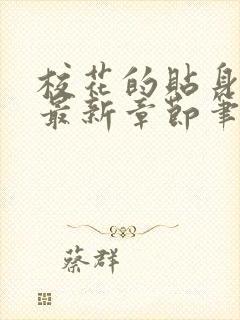 校花的贴身
最新章节笔
蔡群